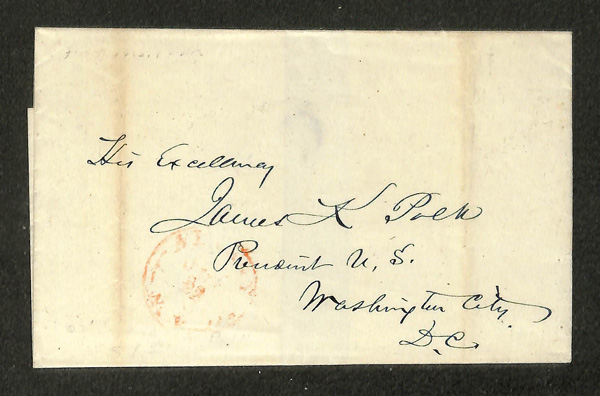 His Excellency
James K Polk
President U. S.
Washington City
D.C.